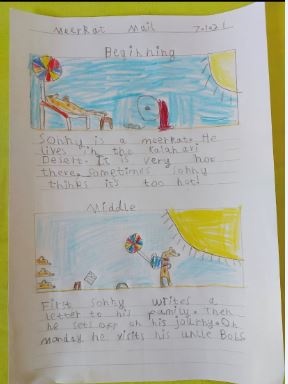 Meerkat Mail 7.10.21
Beginning
Sonny is a meerkat. He
lives in the Kalahari
Desert. It is very hot
there. Sometimes sonny
thinks it's too hot!
Middle
First sonny writes a
letter to his family. Then
he sets off on his journy. On
Monday he visits his uncle Bob.